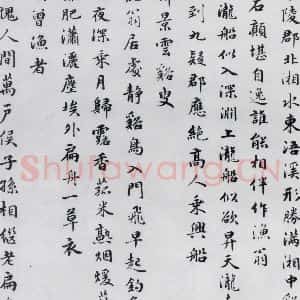 北湘水東浯溪形勝滿湘中
石顛堪自逸誰能相伴作漁翁
瀧船似入深淵上瀧船似欲昇天瀧
到九疑郡應絕高人乘興船
景雲谿叟
翁居處靜谿鳥入門飛早起釣
夜深乘月歸露香菰米熟煙暖
肥瀟灑塵埃外扁舟一草衣
曾漁者
愧人間萬戶侯子孫相繼老扁
Shufawang.CN